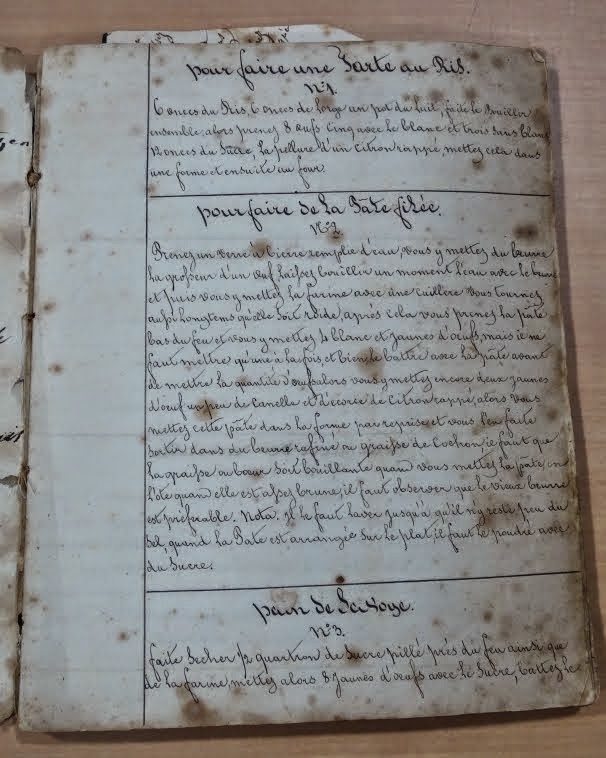 pour faire une Tarte au Ris.
N°1.
6 onces du Ris, 6 onces de Lorge un pot du Lait, faite le Bouillir
ensemble, alors prenez 8 œufs cinq avec le blanc et trois sans blanc
12 onces du Sucre, la pellure d'un Citron rappé, mettez cela dans
une forme et ensuite au four.
pour faire de La Pâte filée.
N°2.
Prenez un verre à bierre remplie d'eau, vous y mettez du beurre
La grosseur d'un œuf Laissez bouillir un moment L'eau avec le beurre
et puis vous y mettez La farine avec une cuillère vous tournez
aussi Longtems qu'elle soit roide, après cela vous prenez La pâte
bas du feu et vous y mettez 4 blanc et jaunes d'œufs, mais il ne
faut mettre qu'une à la fois et bien le battre avec La pâte avant
de mettre La quantité d'œufs alors vous y mettez encore deux jaunes
d'œuf un peu de Canelle et d'écorce de Citron rappé, alors vous
mettez cette pâte dans La forme par reprise et vous L'en faite
sortir dans du beurre rafiné ou graisse de Cochon il faut que
La graisse ou beur soit bouillante quan vous mettez La pâte, on
L'ôte quand elle est assez brune, il faut observer que le vieux beurre
est préférable. Nota. Il le faut laver jusqu'a qu'il n'y reste peu du
Sel, quand La Pâte est arrangée sur le plat, il faut le poudré avec
du Sucre.
pain de Scavoye.
N°3.
faite Secher 1/2 quartron de Sucre pillé près du feu ainsi que
de La farine, mettez alors 8 jaunes d'œufs avec Le Sucre, battez Le